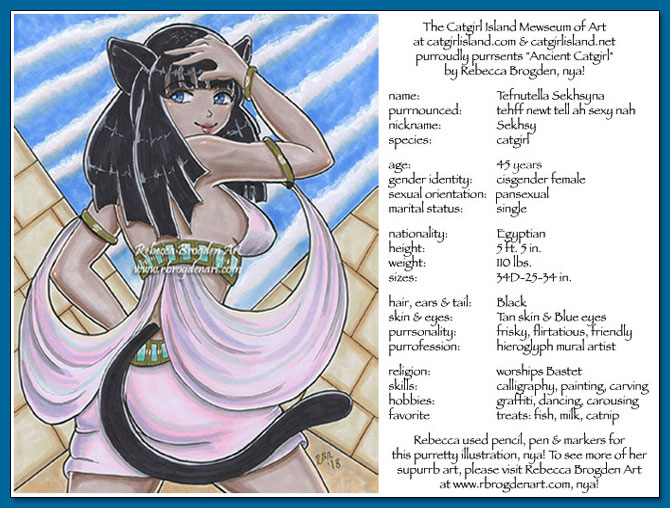 The Catgirl Island Mewseum of Art
at catgirlisland.com & catgirlisland.net
purroudly purrsents "Ancient Catgirl"
by Rebecca Brogden, nya!
name: Tefnutella Sekhsyna
purrnounced: tehff newt tell ah sexy nah
nickname: Sekhsy
species: catgirl
age: 45 years
gender identity: cisgender female
sexual orientation: pansexual
marital status: single
nationality: Egyptian
height: 5 ft. 5 in.
weight: 110 lbs.
sizes: 34D-25-34 in.
hair, ears & tail: Black
skin & eyes: Tan skin & Blue eyes
purrsonality: frisky, flirtatious, friendly
purrofession: hieroglyph mural artist
religion: worships Bastet
skills: calligraphy, painting, carving
hobbies: graffiti, dancing, carousing
favorite treats: fish, milk, catnip
Rebecca used pencil, pen & markers for
this purretty illustration, nya! To see more of her
supurrb art, please visit Rebecca Brogden Art
at www.rbrogdenart.com, nya!
Rebecca Brogden Art
www.rbrogdenart.com
'18